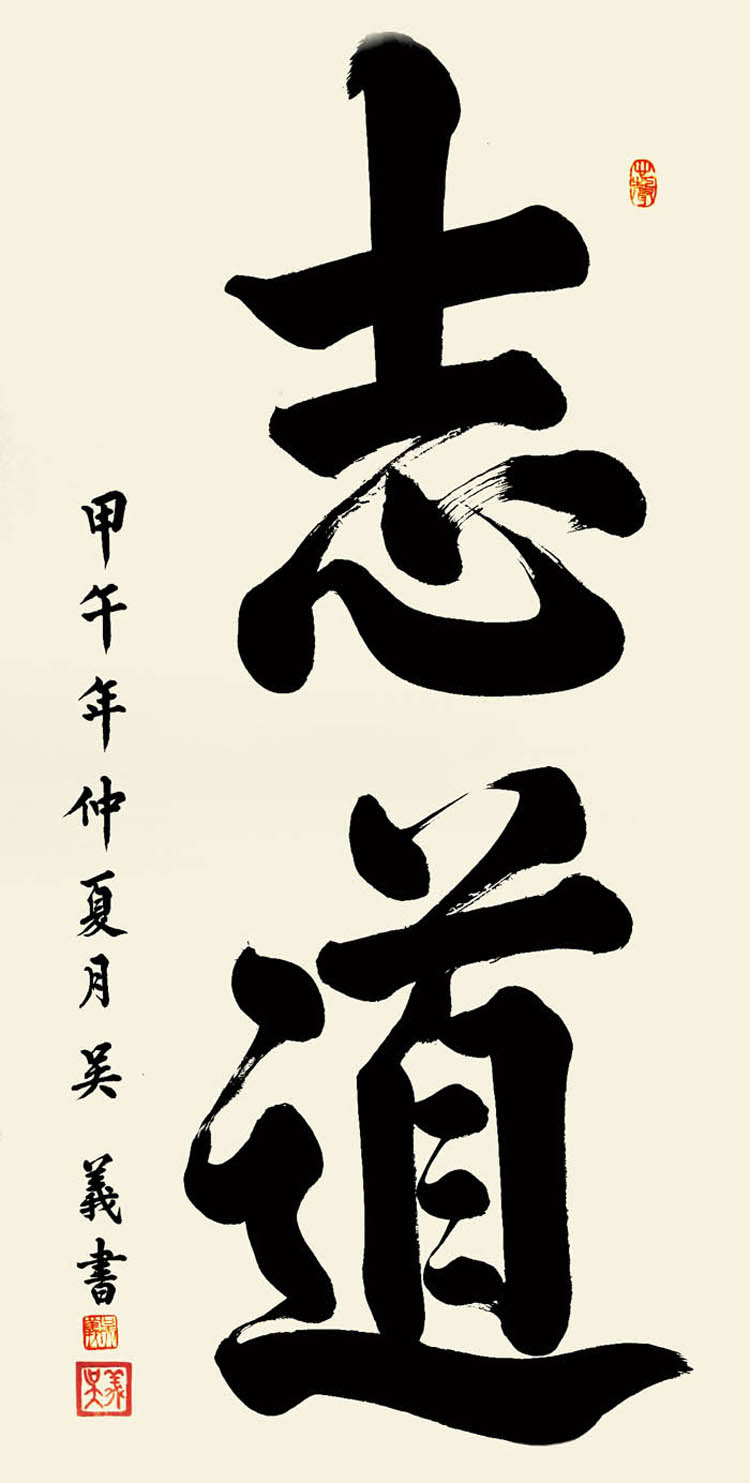 志道
甲午年仲夏月吴義書
吴義